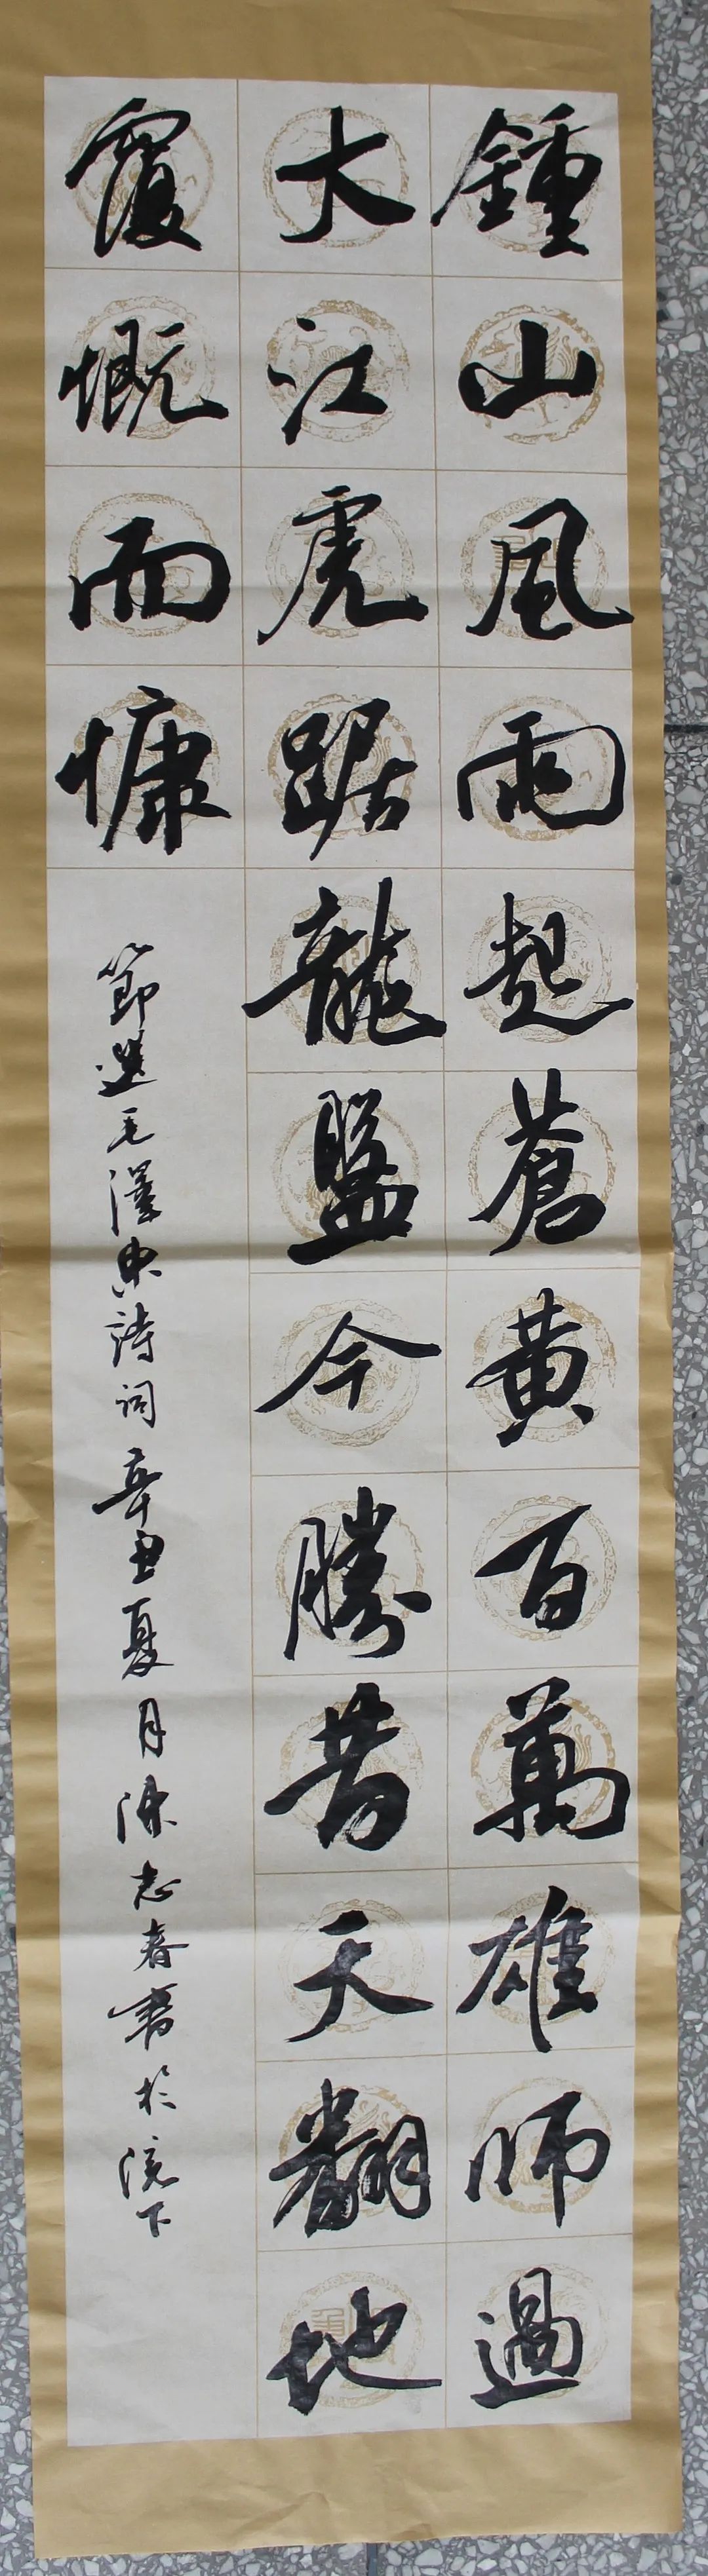 鍾山風雨起蒼黃百萬雄師過
大江虎踞龍盤今勝昔天翻地
覆慨而慷
節選毛澤東詩詞辛丑夏月陳志春書於浣下